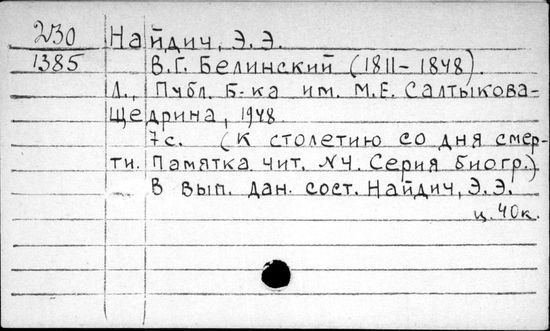 2430 Найдич, Э.Э.
1385 В.Г. Белинский (1811-1848).
Л., Публ. Б-ка им. М.Е. Салтыкова-
Щедрина, 1948.
7с. (К столетию со дня смер-
ти. Памятка чит. №4. Серия биогр.)
В вып. дан. сост. Найдич, Э.Э.
ц. 40к.